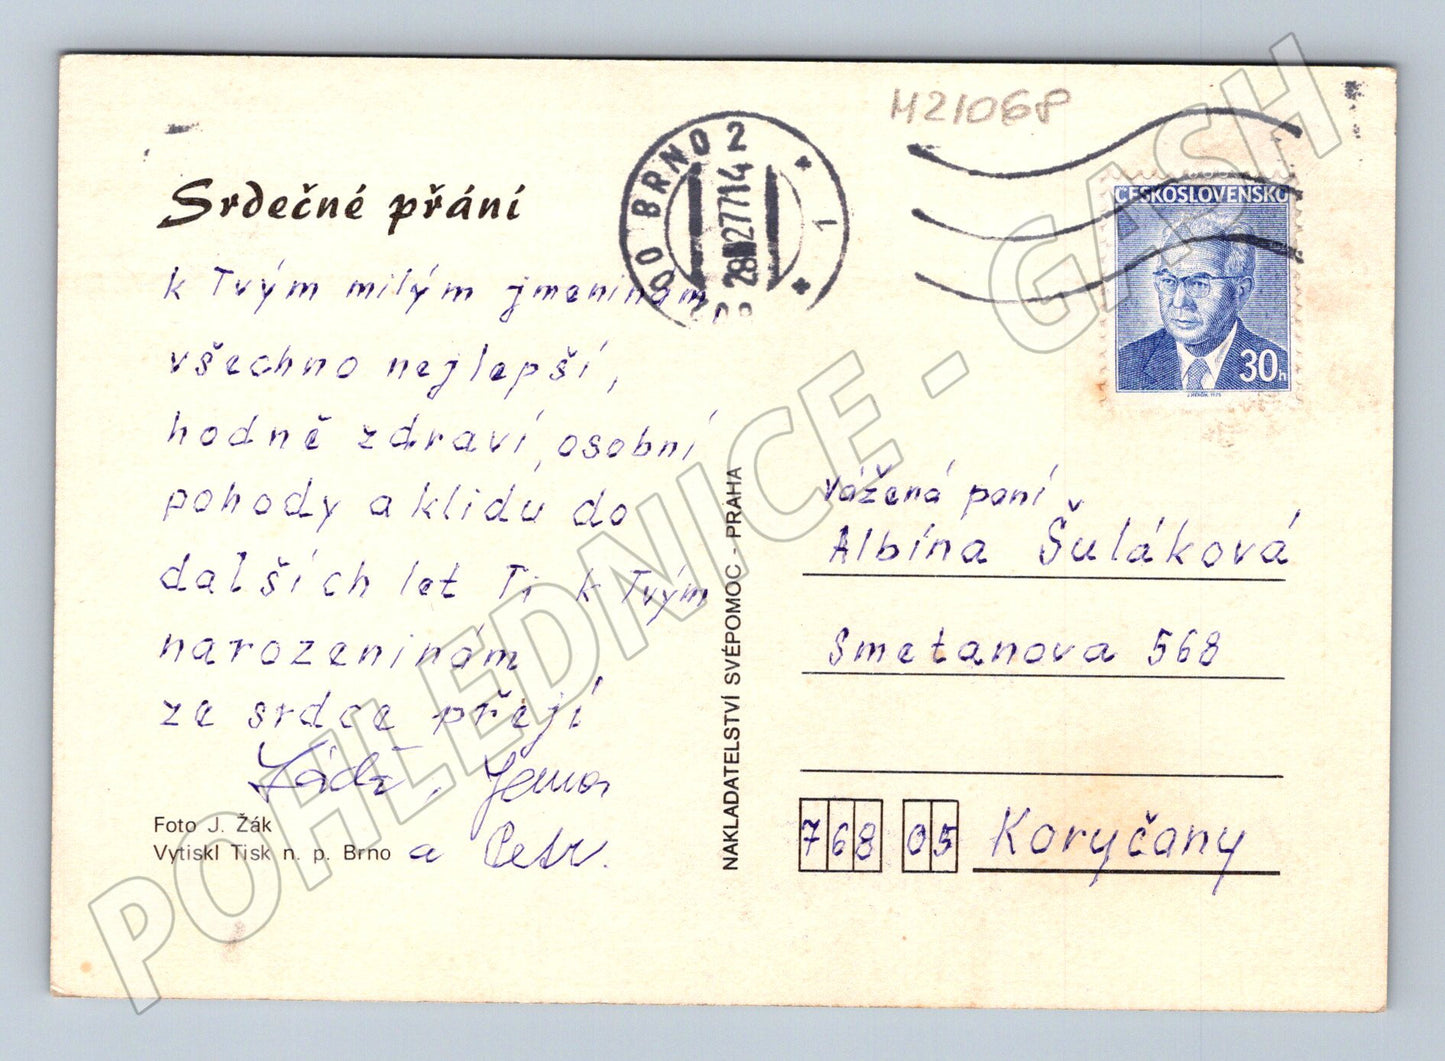 M21068
BRNO 2
1
ČESKOSLOVENSKO
30h
Srdečné přání
k Tvým milým jmeninám
všechno nejlepší,
hodně zdraví, osobní
pohody a klidu do
dalších let Ti k Tvým
narozeninám
ze srdce přejí
a Petr.
Foto J. Žák
Vytiskl Tisk n. p. Brno
NAKLADATELSTVÍ SVÉPOMOC - PRAHA
Vážená paní
Albína Šuláková
Smetanova 568
768 05 Koryčany
POHLEDNICE - GASH